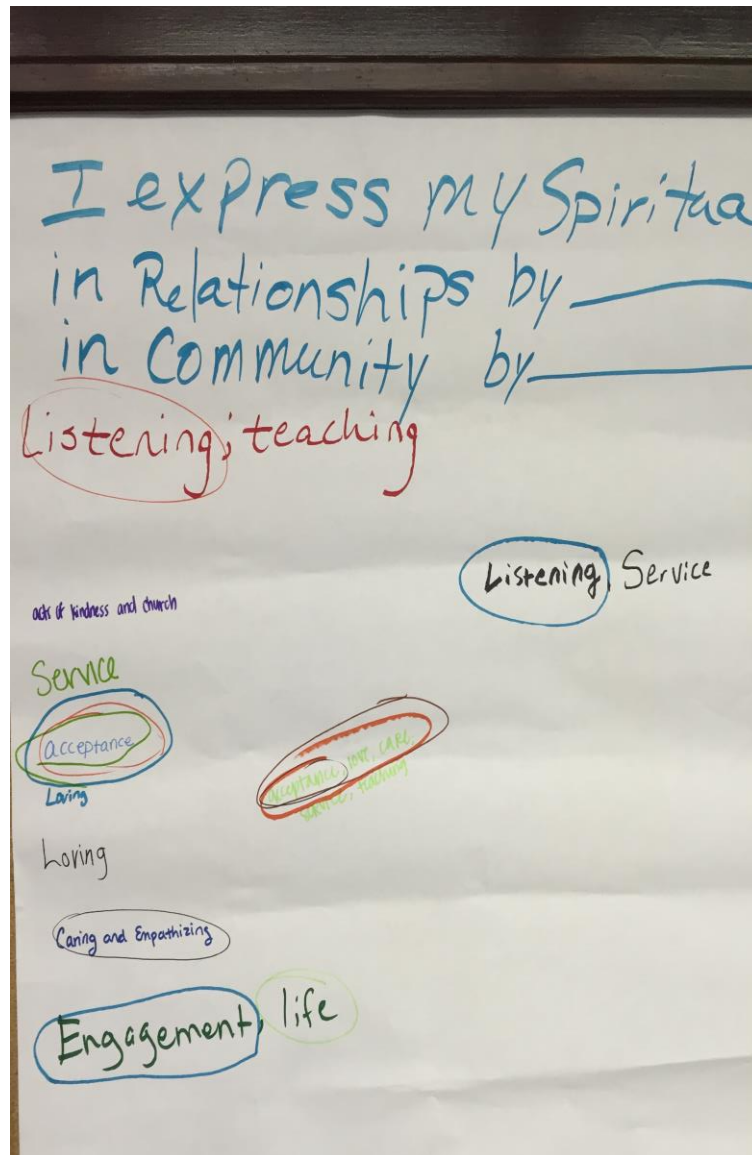 I express my Spiritua
in Relationships by
in Community by
Listening; teaching
Listening, Service
acts of kindness and church
Service
acceptance
Loving
acceptance, love, care,
service, teaching
Loving
Caring and Empathizing
Engagement, life